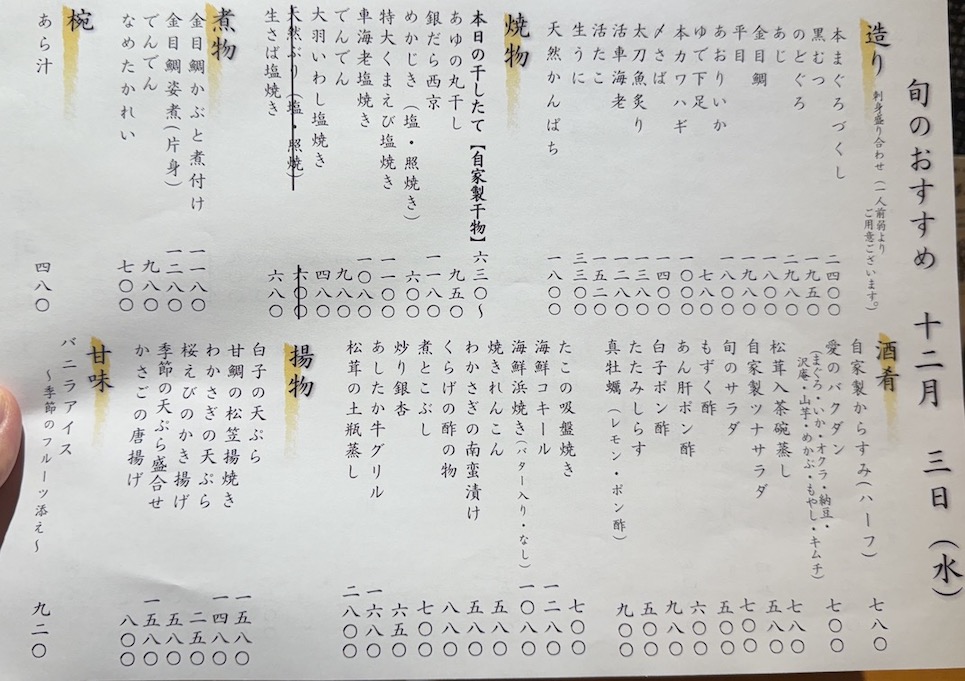 旬のおすすめ 十二月 三日（水）
造り 刺身盛り合わせ（一人前弱よりご用意ございます。）
本まぐろづくし 二四〇〇
黒むつ 一九五〇
のどぐろ 二九八〇
あじ
金目鯛
平目
あおりいか
ゆで下足 七八〇
本カワハギ 一〇〇〇
〆さば 一四〇〇
太刀魚炙り 一三八〇
活車海老 一二八〇
活たこ 一五二〇
生うに 三三〇〇
天然かんぱち 一八〇〇
焼物
本日の干したて【自家製干物】六三〇〜
あゆの丸干し 九五〇
銀だら西京 一一八〇
めかじき（塩・照焼き） 六〇〇
特大くまえび塩焼き 一一〇〇
車海老塩焼き 一〇八〇
でんでん 九八〇
大羽いわし塩焼き 四八〇
天然ぶり（塩・照焼） 六〇〇
生さば塩焼き 六八〇
煮物
金目鯛かぶと煮付け 一一八〇
金目鯛姿煮（片身） 一二八〇
でんでん 九八〇
なめたかれい 七〇〇
椀
あら汁 四八〇
酒肴
自家製からすみ（ハーフ） 七八〇
愛のバクダン 七〇〇
（まぐろ・いか・オクラ・納豆・
沢庵・山芋・めかぶ・もやし・キムチ）
松茸入茶碗蒸し 七八〇
自家製ツナサラダ 五八〇
旬のサラダ 七〇〇
もずく酢 五〇〇
あん肝ポン酢 六〇〇
白子ポン酢 九八〇
たたみしらす 五〇〇
真牡蠣（レモン・ポン酢） 九〇〇
たこの吸盤焼き 七〇〇
海鮮コキール 一二八〇
海鮮浜焼き（バター入り・なし） 一〇八〇
焼きれんこん 五〇〇
わかさぎの南蛮漬け 五八〇
くらげの酢の物 八〇〇
煮とこぶし 七〇〇
炒り銀杏 六五〇
あしたか牛グリル 一六八〇
松茸の土瓶蒸し 二八〇〇
揚物
白子の天ぷら 一五八〇
甘鯛の松笠揚焼き 一四八〇
わかさぎの天ぷら 二五〇
桜えびのかき揚げ 五八〇
季節の天ぷら盛合せ 一五八〇
かさごの唐揚げ 八〇〇
甘味
バニラアイス
〜季節のフルーツ添え〜 九二〇